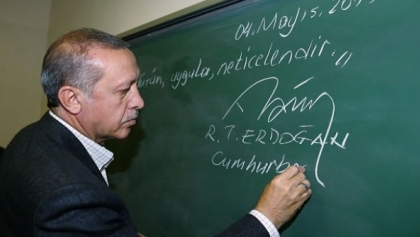 04 Mayıs
uygula, neticelendir."
R. T. ERDOĞAN
Cumhurba